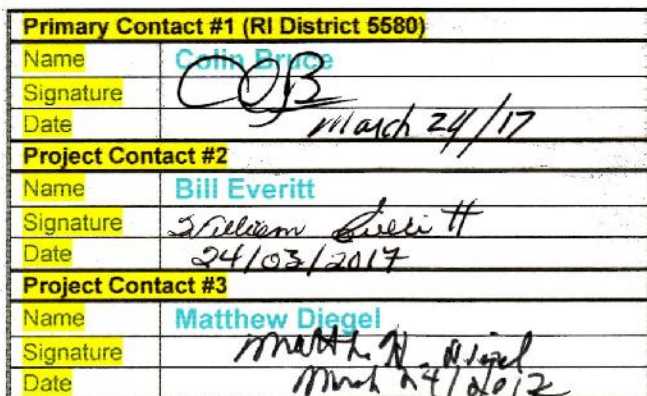 Primary Contact #1 (RI District 5580)
Name Colin Bruce
Signature COB
Date March 24/17
Project Contact #2
Name Bill Everitt
Signature William Everitt
Date 24/03/2017
Project Contact #3
Name Matthew Diegel
Signature Matth N. Diegel
Date March 24/2017